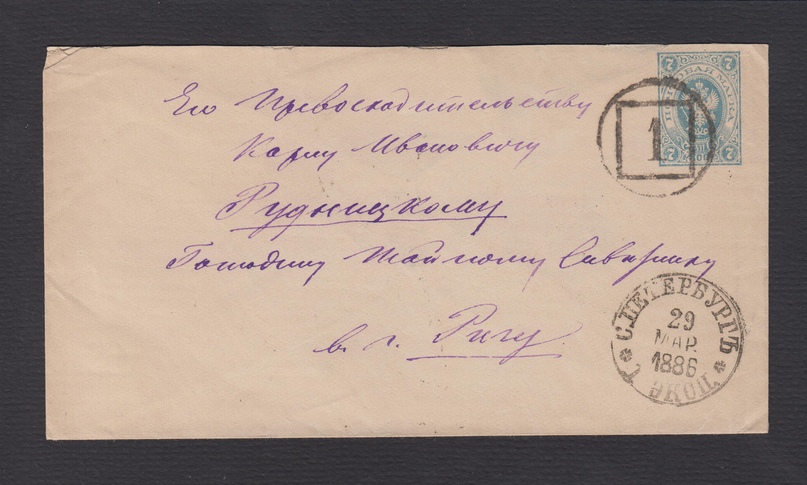 Его Превосходительству
Карлу Ивановичу
Рудницкому
Господину Тайному Советнику
в г. Ригу.
7 7
ПОЧТОВАЯ МАРКА
7 7
1
С.ПЕТЕРБУРГЪ
29
МАР.
1886
ЭКСП.